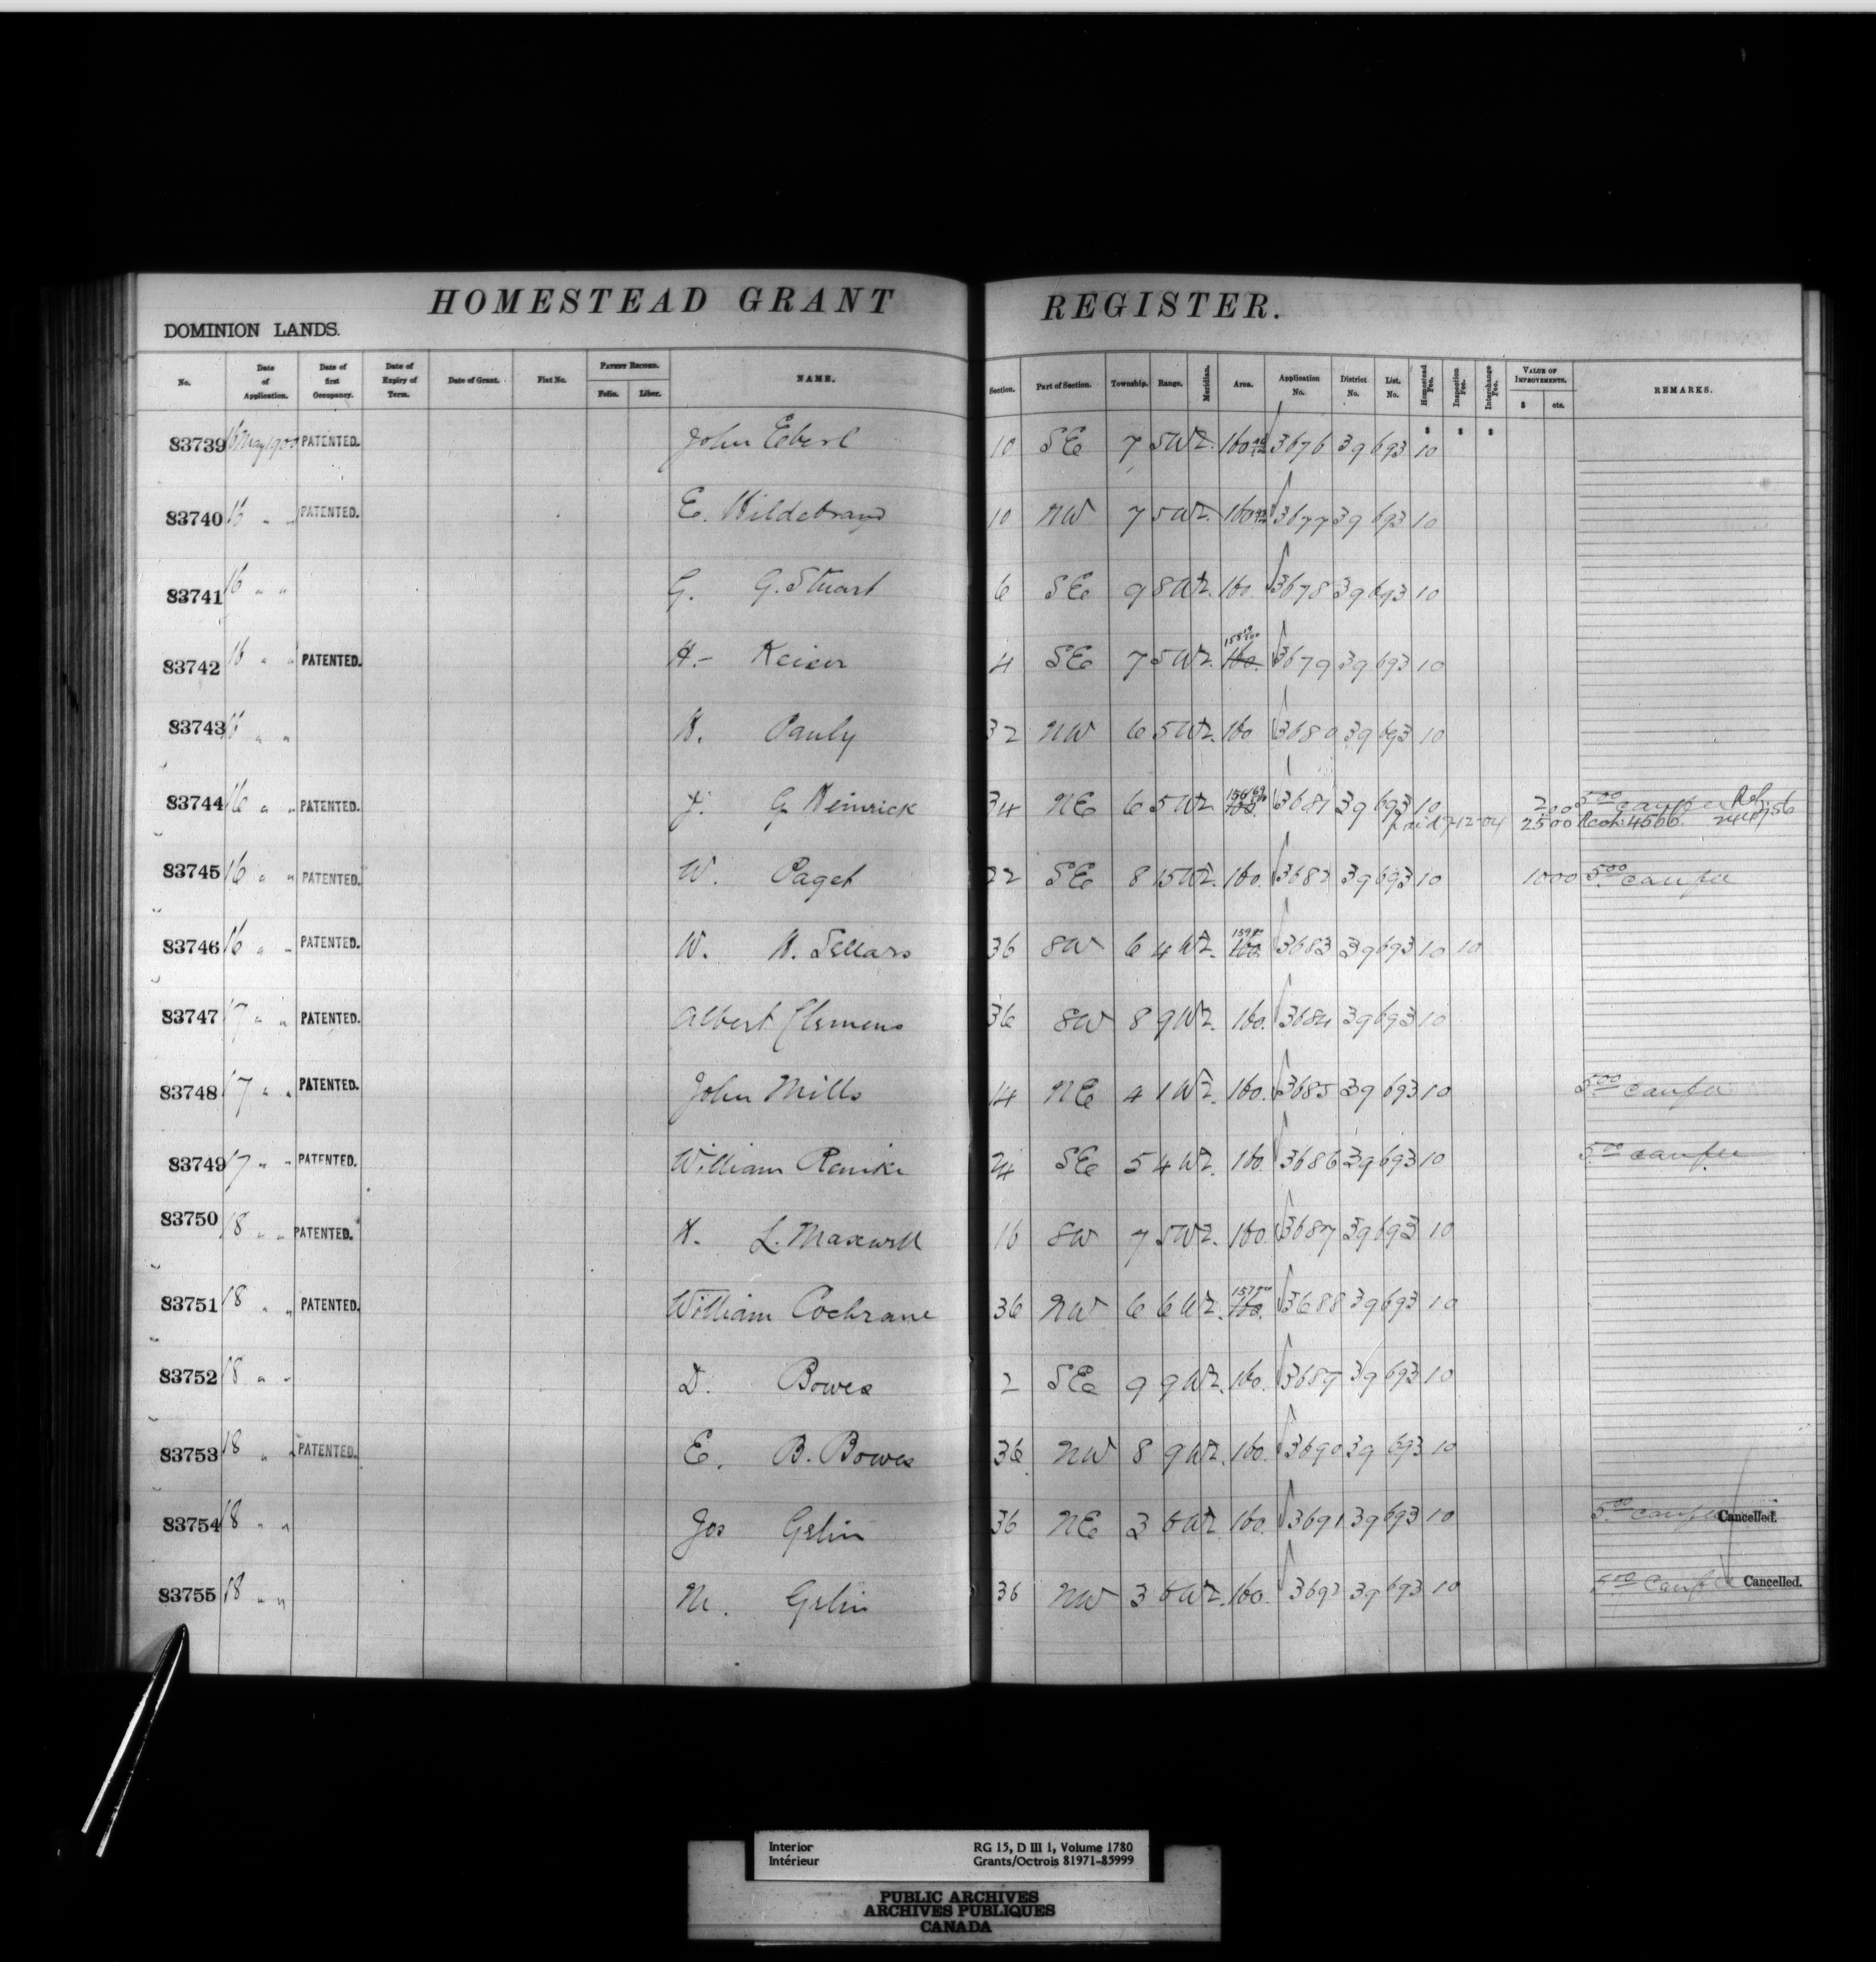 HOMESTEAD GRANT REGISTER.
DOMINION LANDS.
No. Date of Application. Date of first Occupancy. Date of Expiry of Term. Date of Grant. Fiat No. PATENT RECORD. Folio. Liber. NAME. Section. Part of Section. Township. Range. Meridian. Area. Application No. District No. List No. Homestead Fee. Inspection Fee. Interchange Fee. VALUE OF IMPROVEMENTS. $ cts. REMARKS.
$ $ $
83739 16 May 1900 PATENTED. John Eberl 10 SE 7 5 W2. 160 3676 39 693 10
83740 16 " " PATENTED. E. Hildebrand 10 NW 7 5 W2. 160 3677 39 693 10
83741 16 " " G. G. Stuart 6 SE 9 8 W2. 160. 3678 39 693 10
83742 16 " " PATENTED. H. Keiser 4 SE 7 5 W2. 160. 3679 39 693 10
83743 16 " " H. Pauly 32 NW 6 5 W2. 160 3680 39 693 10
83744 16 " " PATENTED. J. G. Heinrick 34 NE 6 5 W2 160. 3681 39 693 10 200 5.00 can fee Ref.
paid 7-12-04 2500 4566
83745 16 " " PATENTED. W. Paget 22 SE 8 15 W2. 160. 3682 39 693 10 1000 5.00 can fee
83746 16 " " PATENTED. W. H. Sellars 36 SW 6 4 W2. 160. 3683 39 693 10 10
83747 17 " " PATENTED. Albert Clemens 36 SW 8 9 W2. 160. 3684 39 693 10
83748 17 " " PATENTED. John Mills 14 NE 4 1 W2. 160. 3685 39 693 10 5.00 can fee
83749 17 " " PATENTED. William Ranike 24 SE 5 4 W2. 160. 3686 39 693 10 5.00 can fee
83750 18 " " PATENTED. H. L. Maxwell 16 SW 7 5 W2. 160. 3687 39 693 10
83751 18 " " PATENTED. William Cochrane 36 NW 6 6 W2. 160. 3688 39 693 10
83752 18 " " D. Bowes 2 SE 9 9 W2. 160. 3689 39 693 10
83753 18 " " PATENTED. E. B. Bowes 36 NW 8 9 W2. 160. 3690 39 693 10
83754 18 " " Jos Gelin 36 NE 3 6 W2 160. 3691 39 693 10 5.00 can fee Cancelled.
83755 18 " " M. Gelin 36 NW 3 6 W2. 160. 3692 39 693 10 5.00 Can fee Cancelled.
Interior RG 15, D III 1, Volume 1780
Intérieur Grants/Octrois 81971-85999
PUBLIC ARCHIVES
ARCHIVES PUBLIQUES
CANADA